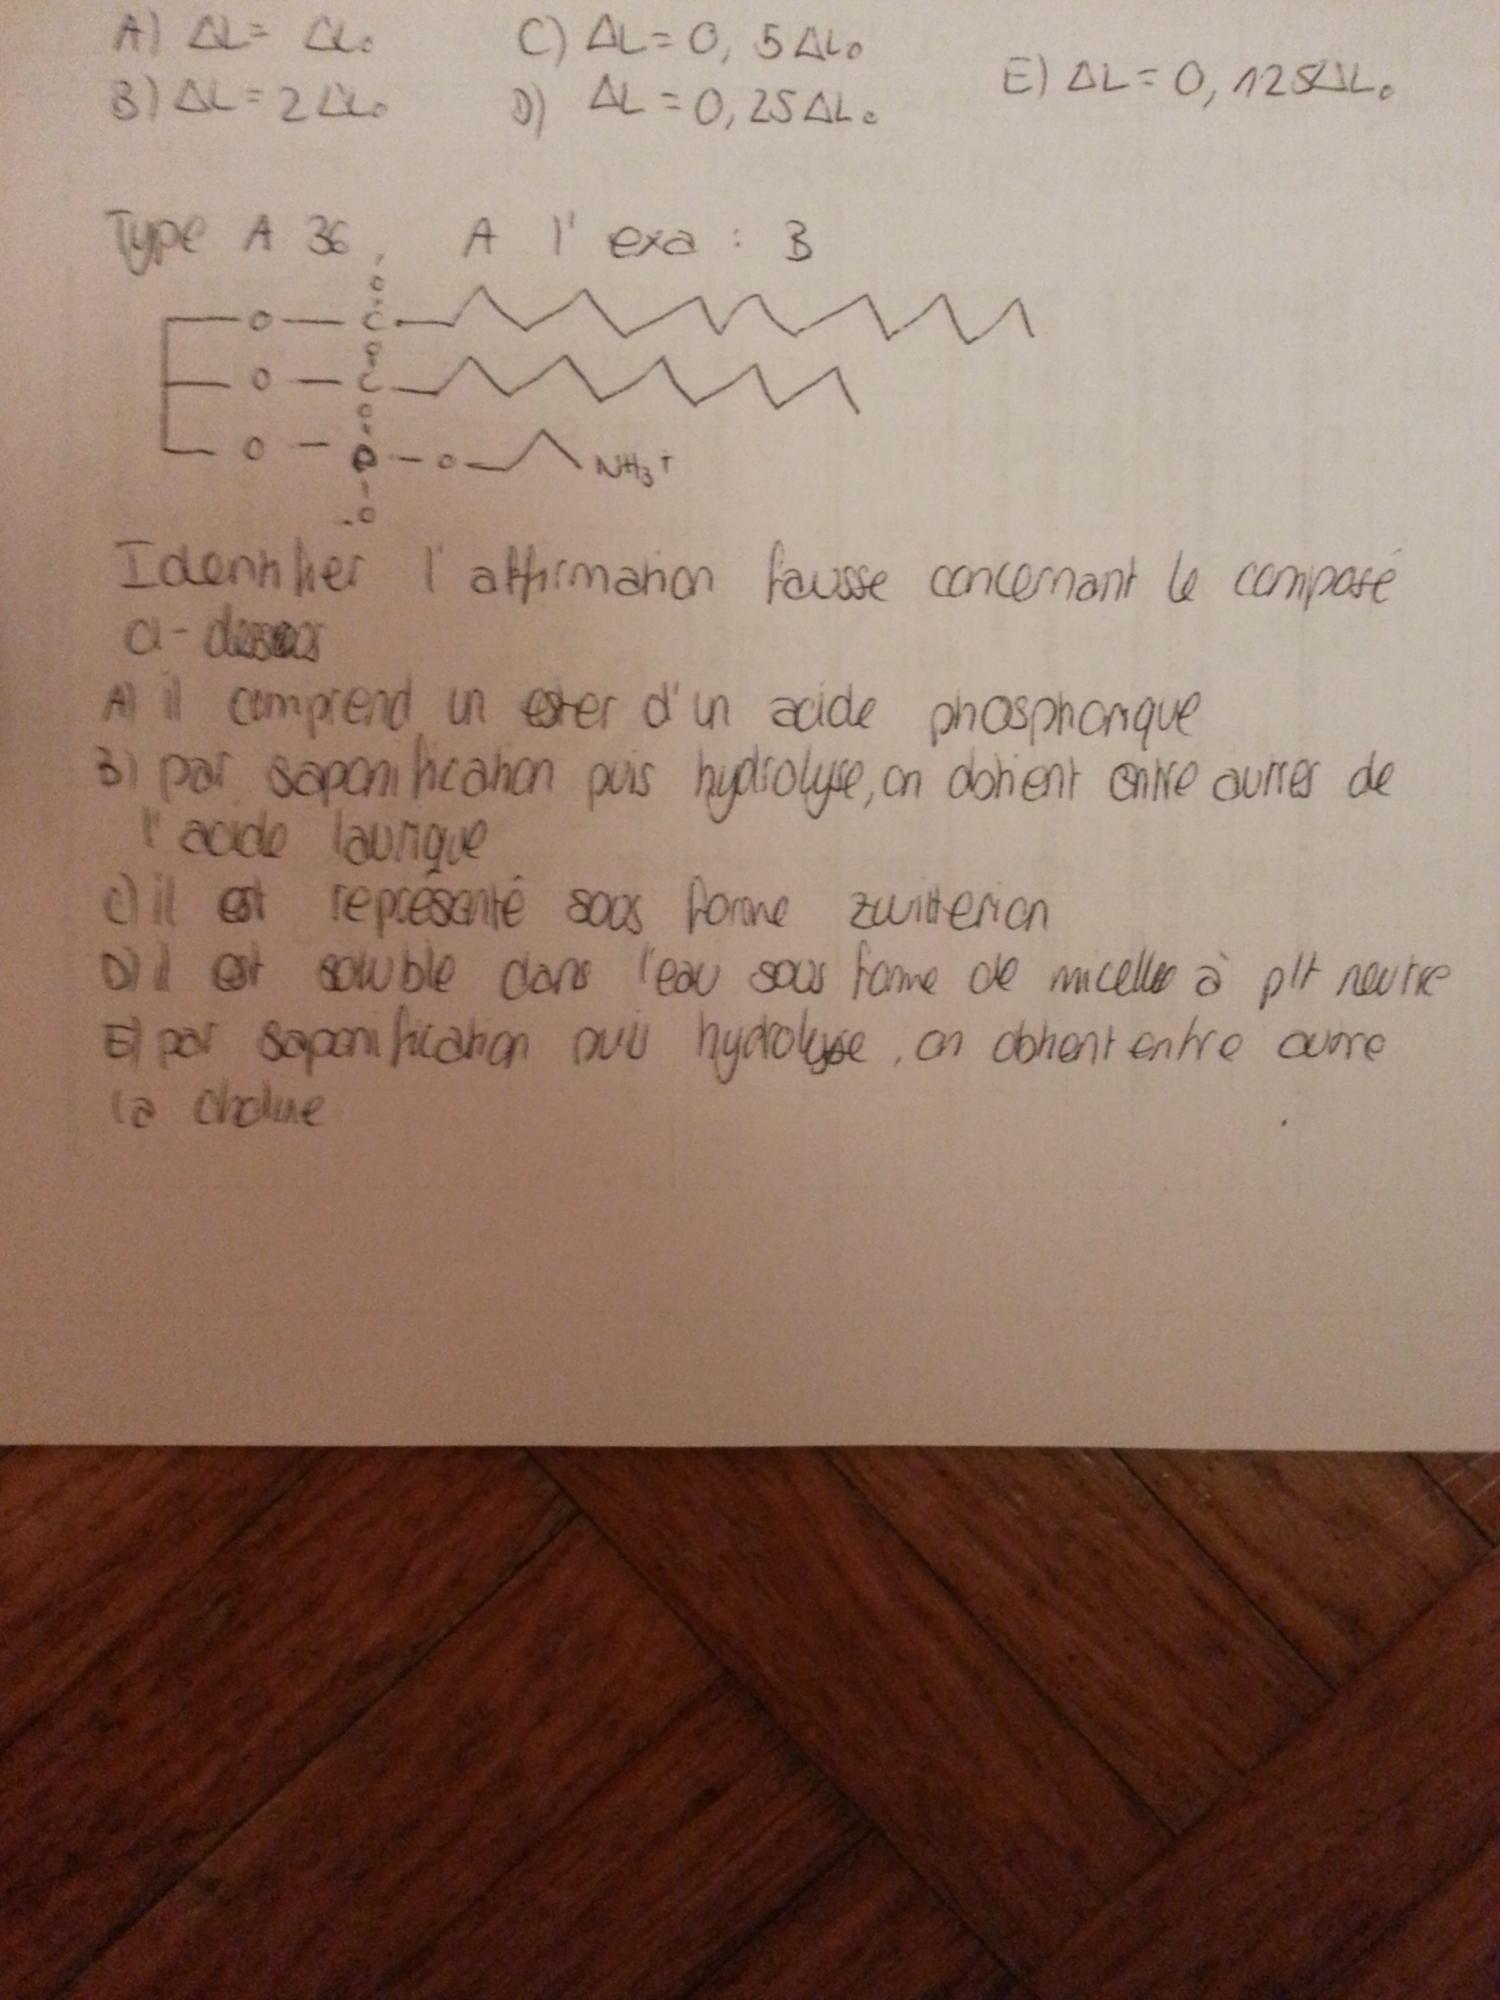 A) ΔL = ΔL₀ C) ΔL = 0,5ΔL₀ E) ΔL = 0,125ΔL₀
B) ΔL = 2ΔL₀ D) ΔL = 0,25ΔL₀
Type A 36, A l'exa : B
O
O — C
O
O — C
O
O — P — O NH₃⁺
-O
Identifier l'affirmation fausse concernant le composé
ci-dessus
A) il comprend un ester d'un acide phosphorique
B) par saponification puis hydrolyse, on obtient entre autres de
l'acide laurique
C) il est représenté sous forme zwitterion
D) il est soluble dans l'eau sous forme de micelle à pH neutre
E) par saponification puis hydrolyse, on obtient entre autre
la choline